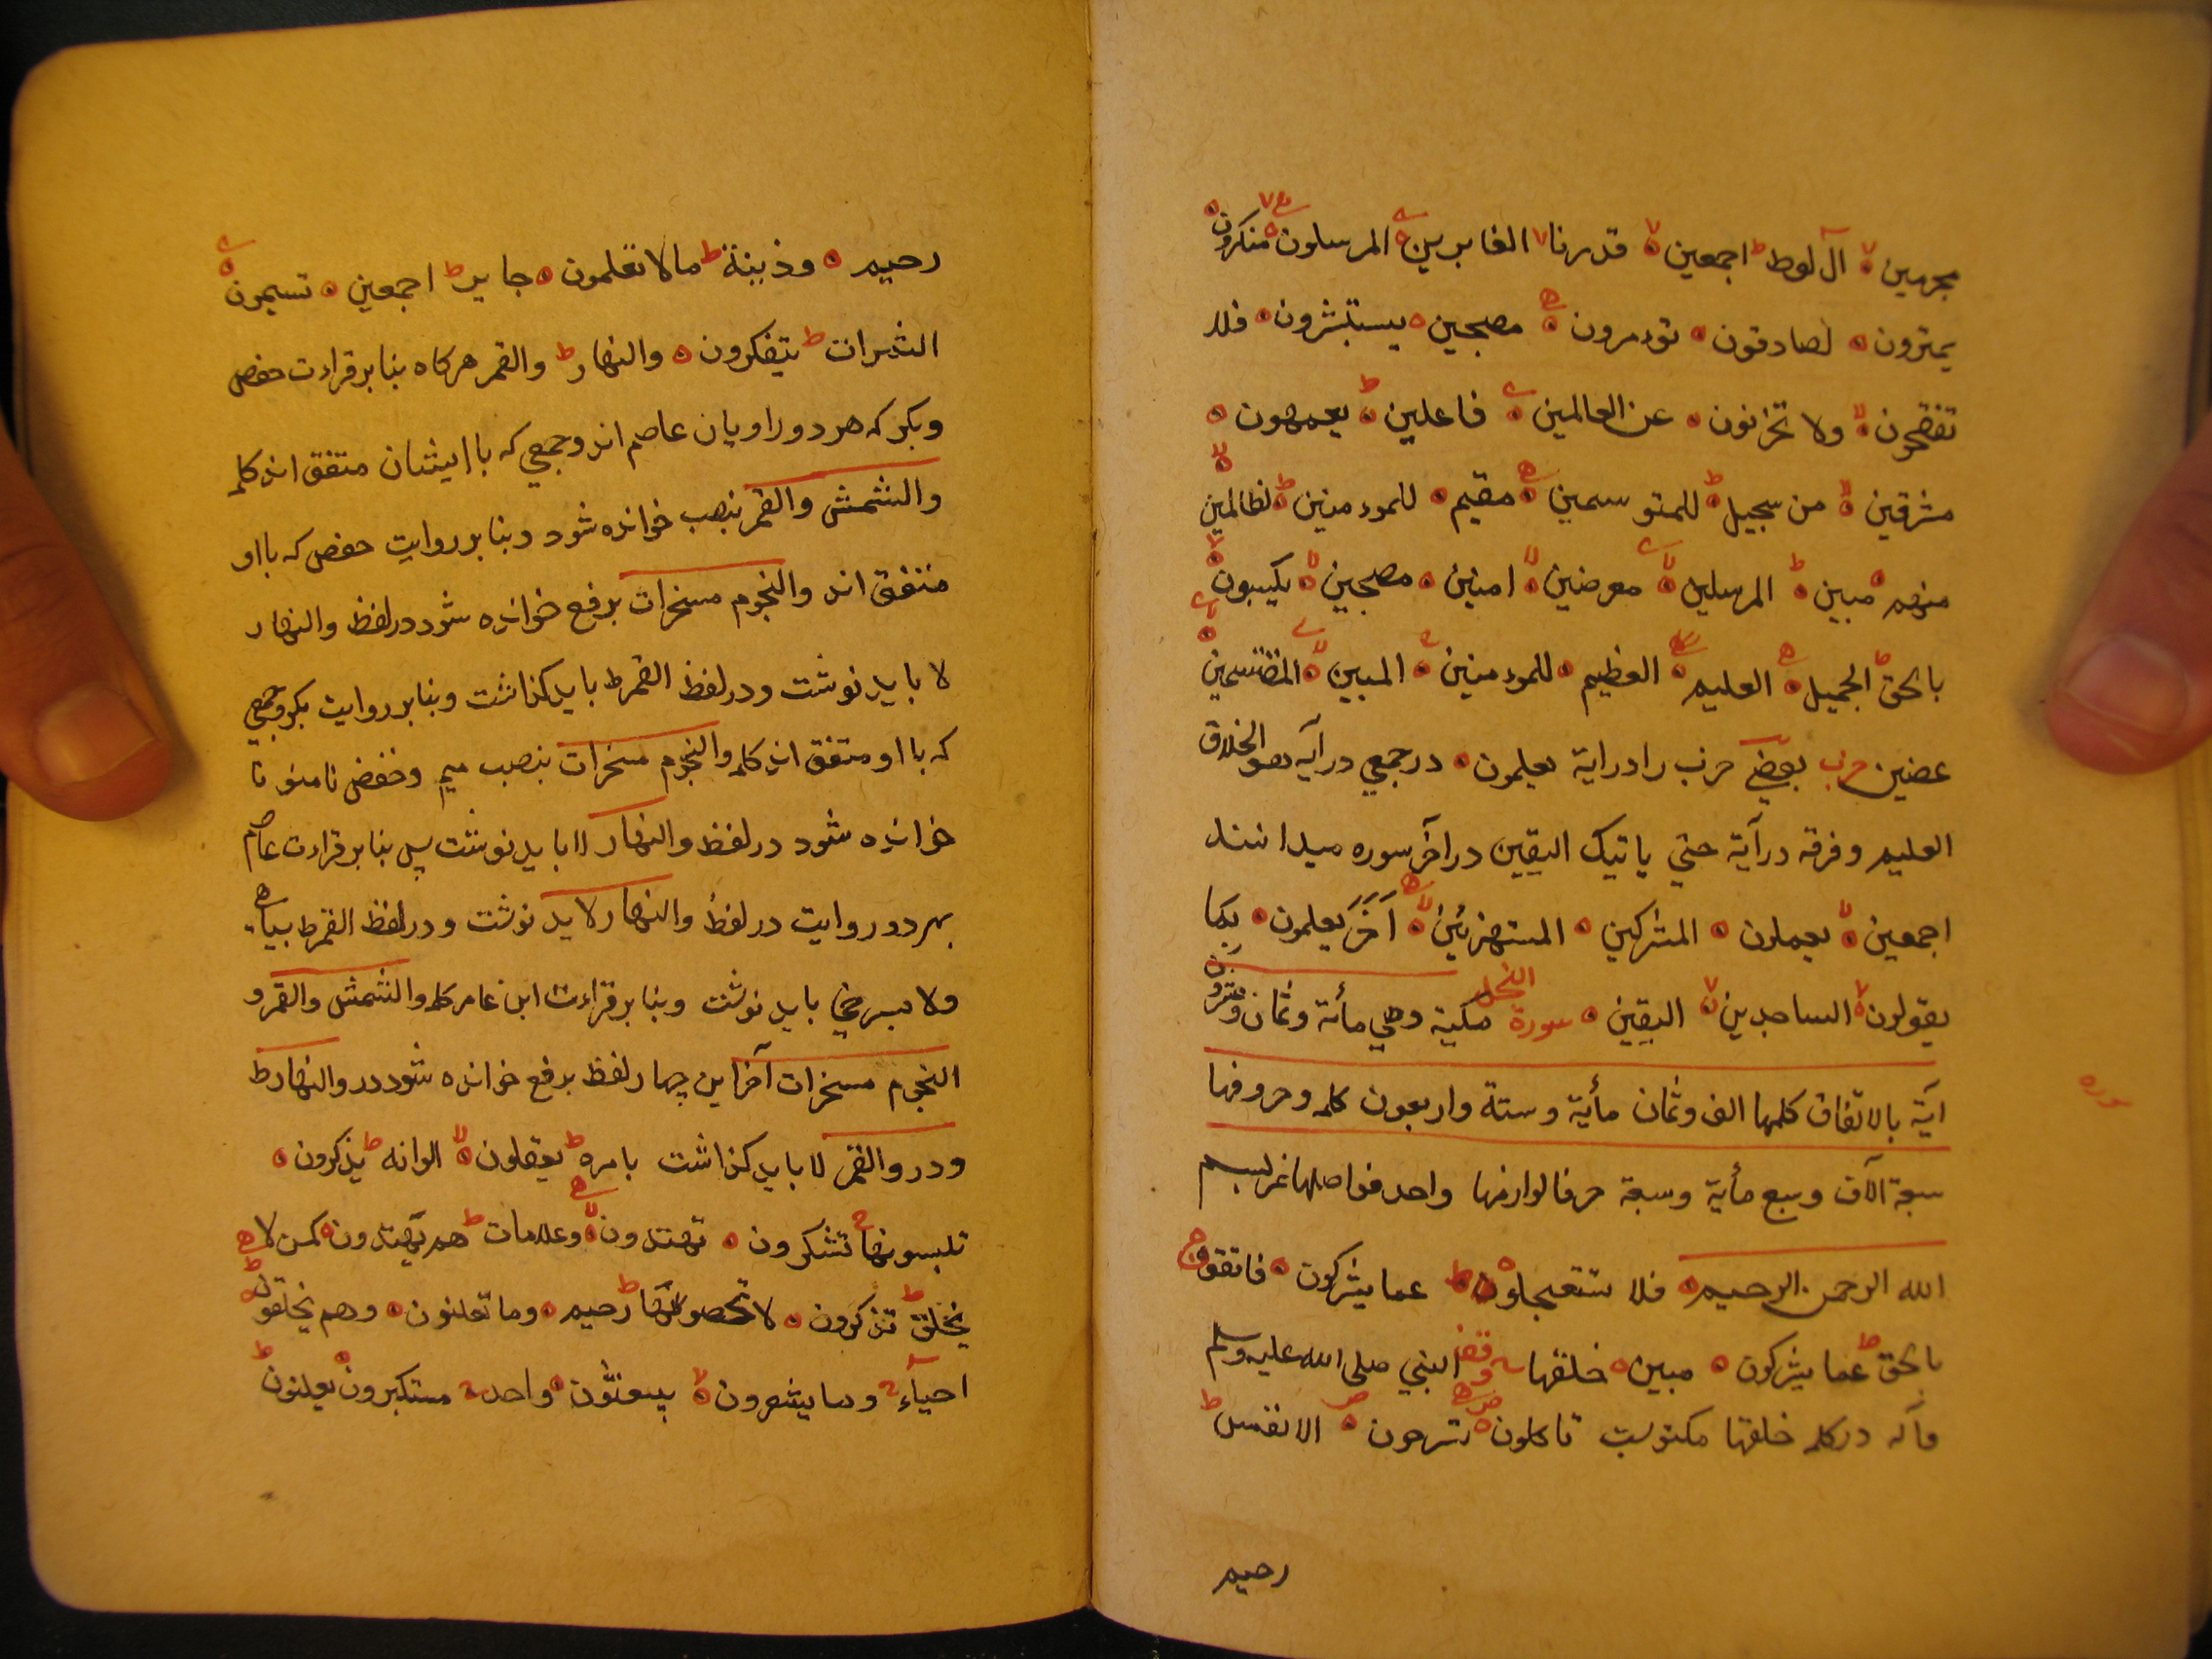 مجرمين لا آل لوط ط اجمعين لا قدرنا لا الغابرين المرسلون منكرون
يمترون لصادقون تؤمرون مصبحين يستبشرون فلا
تفضحون ولا تخزون عن العالمين فاعلين ط يعمهون
مشرقين من سجيل ط للمتوسمين مقيم للموءمنين ط لظالمين
منهم مبين ط المرسلين معرضين امنين مصبحين يكسبون
بالحق ط الجميل العليم العظيم للموءمنين المبين المقتسمين
عضين حزب بعضي حزب را در اية يعملون در جمعي در آيه هو الخلاق
العليم وفرقه در آية حتي ياتيك اليقين در آخر سوره ميدانند
اجمعين يعملون المشركين المستهزئين آخر يعلمون بما
يقولون الساجدين لا اليقين سورة النحل مكية وهي مأئة وثمان وعشرون
آية بالاتفاق كلمها الف وثمان مأية وستة واربعون كلمه وحروفها
سبعة الآف وسبع مأية وسبعة حرفا لوازمها واحد فواصلها نمر بسم
الله الرحمن الرحيم فلا تستعجلوه ط عما يشركون فاتقون
بالحق ط عما يشركون مبين خلقها وقف النبي صلى الله عليه وسلم
در كلمه خلقها مكتوبست تاكلون تسرحون الانفس ط
رحيم
رحيم وزينة ط مالا تعلمون جاير ط اجمعين تسيمون
الثمرات ط يتفكرون والنهار ط والقمر هركاه بنا بر قراءت حفص
وبكر كه هر دو راويان عاصم اند وجمعي كه با ايشان متفق اند كلمه
والشمس والقمر بنصب خوانده شود وبنا بر روايت حفص كه با او
متفق اند والنجوم مسخرات برفع خوانده شود در لفظ والنهار
لا بايد نوشت ودر لفظ القمر ط بايد كذاشت وبنا بر روايت بكر وجمعي
كه با او متفق اند كلمه والنجوم مسخرات بنصب ميم وخفض تا منونا
خوانده شود در لفظ والنهار لا بايد نوشت پس بنا بر قراءت عاصم
بهر دو روايت در لفظ والنهار لا بد نوشت ودر لفظ القمر ط بسياهي
ولا بسرخي بايد نوشت وبنا بر قراءت ابن عامر كلمه والشمس والقمر و
النجوم مسخرات آخر اين چهار لفظ برفع خوانده شود در والنهار ط
ودر والقمر لا بايد كذاشت بامره ط يعقلون لا الوانه ط يذكرون
تلبسونها تشكرون تهتدون وعلامات ط هم يهتدون كمن لا
يخلق ط تذكرون لا تحصوها ط رحيم وما تعلنون وهم يخلقون
احياء وما يشعرون لا يبعثون واحد مستكبرون يعلنون ط